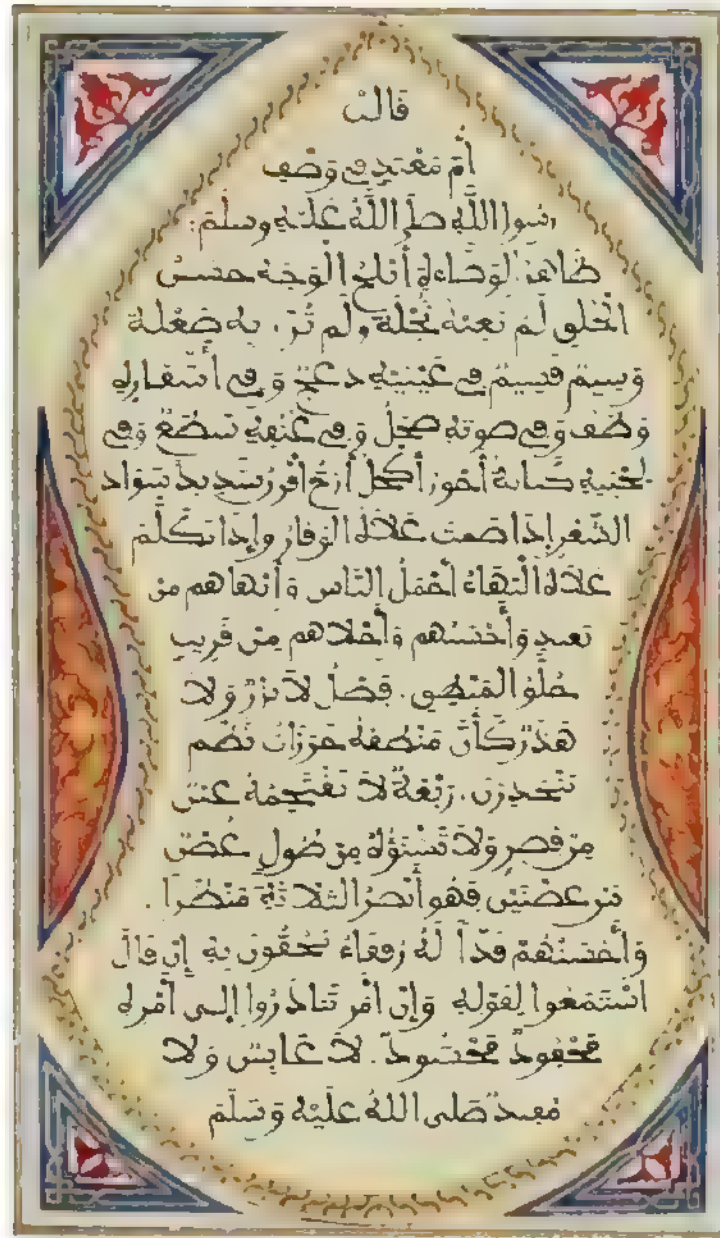 قالت
أم معبد في وصف
رسول الله صلى الله عليه وسلم:
ظاهر الوضاءة أبلج الوجه حسن
الخلق لم تعبه نُجلة ولم تُزر به صعلة
وسيم قسيم في عينيه دعج وفي أشفاره
وطف وفي صوته صحل وفي عنقه سطع وفي
لحيته كثاثة أحور أكحل أزج أقرن شديد سواد
الشعر إذا صمت علاه الوقار وإذا تكلم
علاه البهاء أجمل الناس وأبهاهم من
بعيد وأحسنهم وأحلاهم من قريب
حلو المنطق. فصل لا نزر ولا
هذر كأن منطقه خرزات نظم
يتحدرن. ربعة لا تقتحمه عين
من قصر ولا تشنؤه من طول غصن
بين غصنين فهو أنضر الثلاثة منظرا.
وأحسنهم قدا له رفقاء يحفون به إن قال
استمعوا لقوله وإن أمر تبادروا إلى أمره
محفود محشود. لا عابس ولا
صلى الله عليه وسلم